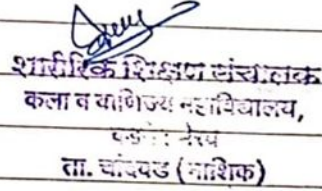 शारीरिक शिक्षण संचालक
कला व वाणिज्य महाविद्यालय,
ता. चांदवड (नाशिक)